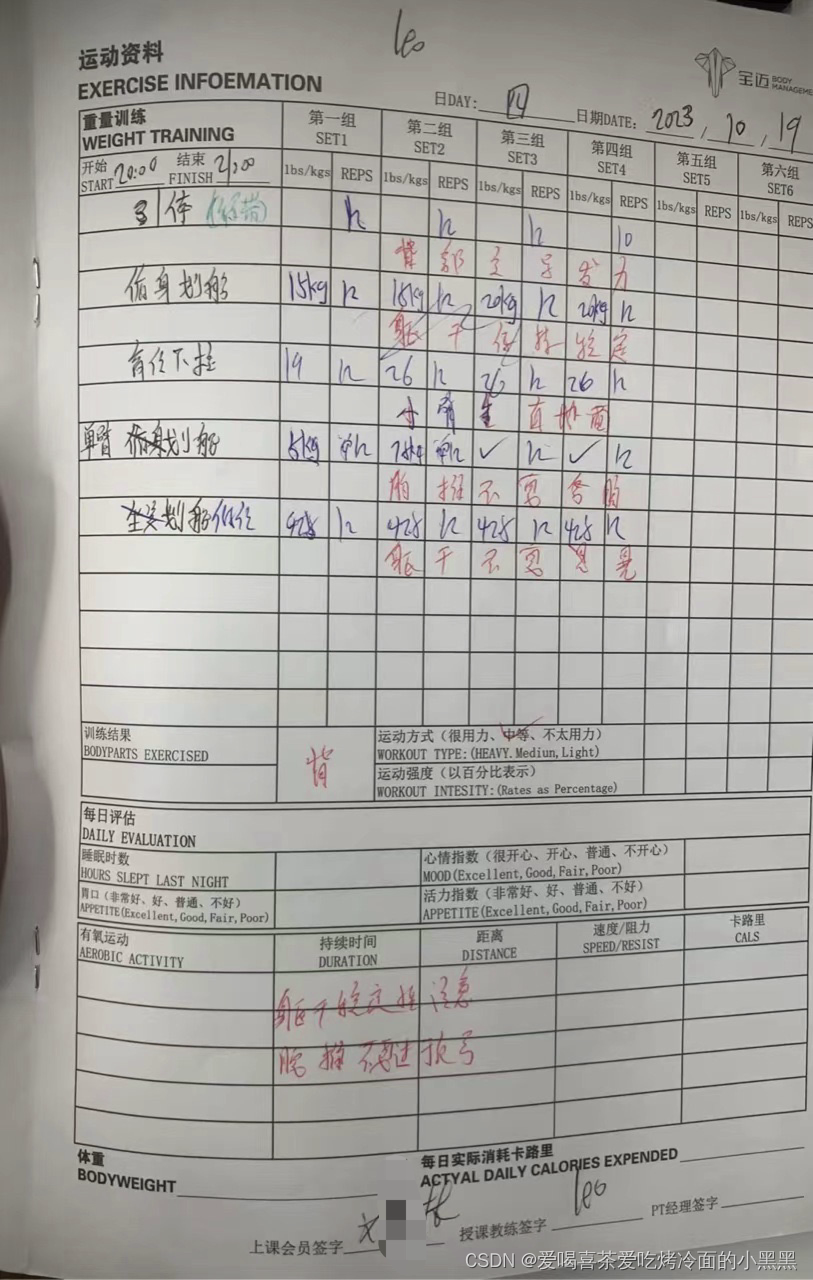 leo
运动资料
EXERCISE INFOEMATION
全迈 BODY MANAGEME
日DAY: 四 日期DATE: 2023 , 10 , 19
重量训练
WEIGHT TRAINING
第一组 第二组 第三组 第四组 第五组 第六组
SET1 SET2 SET3 SET4 SET5 SET6
开始 结束
START 20:00 FINISH 21:00
lbs/kgs REPS lbs/kgs REPS lbs/kgs REPS lbs/kgs REPS lbs/kgs REPS lbs/kgs REPS
引体 12 12 12 10
背部主导发力
俯身划船 15kg 12 15kg 12 20kg 12 20kg 12
躯干保持稳定
高位下拉 19 12 26 12 26 12 26 12
小臂 垂直地面
单臂 划船 单12 单12 ✓ 12 ✓ 12
不要
划船 低位 12 12 12 12
躯干不要晃
训练结果
BODYPARTS EXERCISED
背
运动方式（很用力、中等、不太用力）
WORKOUT TYPE:(HEAVY.Mediun,Light)
运动强度（以百分比表示）
WORKOUT INTESITY:(Rates as Percentage)
每日评估
DAILY EVALUATION
睡眠时数
HOURS SLEPT LAST NIGHT
心情指数（很开心、开心、普通、不开心）
MOOD(Excellent,Good,Fair,Poor)
胃口（非常好、好、普通、不好）
APPETITE(Excellent,Good,Fair,Poor)
活力指数（非常好、好、普通、不好）
APPETITE(Excellent,Good,Fair,Poor)
有氧运动 持续时间 距离 速度/阻力 卡路里
AEROBIC ACTIVITY DURATION DISTANCE SPEED/RESIST CALS
躯干稳定性 注意
体重
BODYWEIGHT
每日实际消耗卡路里
ACTYAL DAILY CALORIES EXPENDED
上课会员签字
授课教练签字 leo
PT经理签字
CSDN @爱喝喜茶爱吃烤冷面的小黑黑